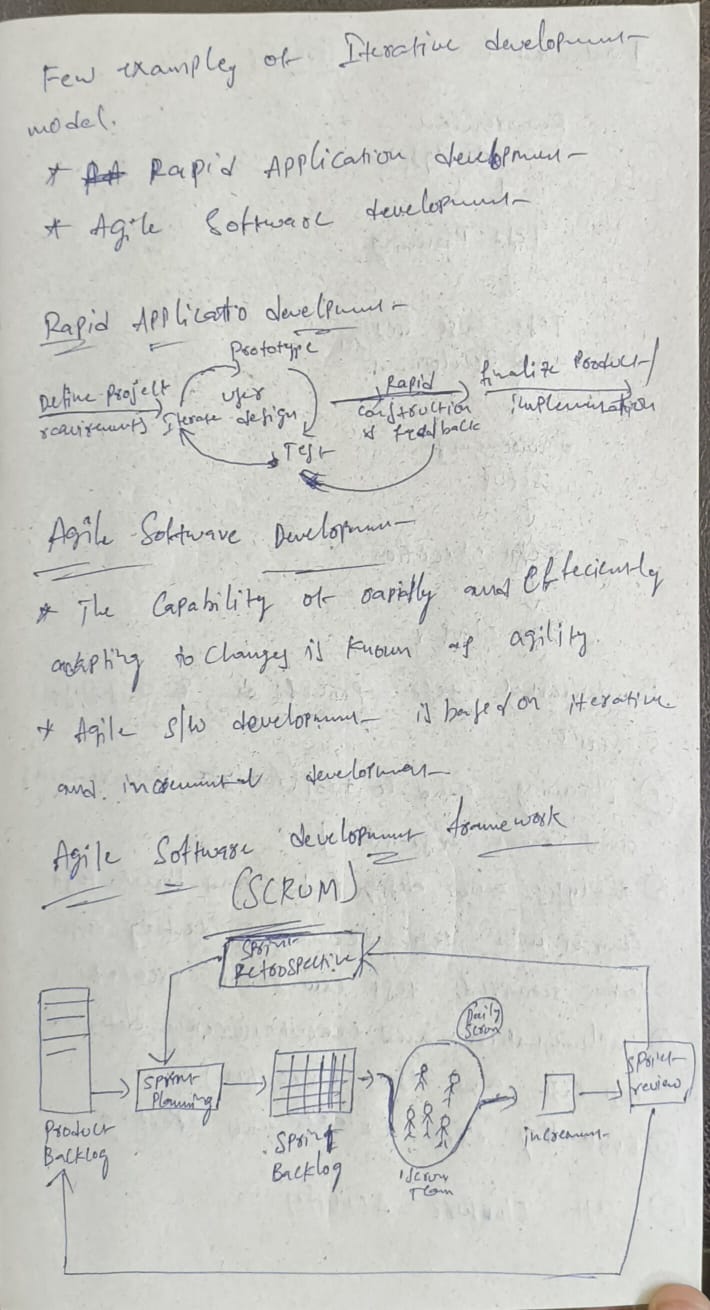 Few examples of Iterative development
model.
* Rapid Application development
* Agile Software development
Rapid Applicatio development
Prototype
Define Project
requirements
Iterate
User
design
Test
Rapid
construction
& feedback
finalize Product/
implementation
Agile Software Development
* The Capability of rapidly and Effeciently
adapting to changes is known as agility.
* Agile s/w development is based on iterative
and incremental development
Agile Software development framework
(SCRUM)
Sprint
Retrospective
Daily
Scrum
Sprint
Planning
Sprint
review
Product
Backlog
Sprint
Backlog
Scrum
Team
increment